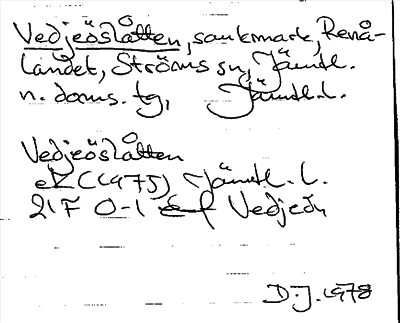 Vedjeöslåtten, sankmark, Renå-
landet, Ströms sn, Jämtl.
n. doms. tg, Jämtl. l.
Vedjeöslåtten
ek (1975) Jämtl. l.
21F 0-1 Vedjeön
D. J. 1978